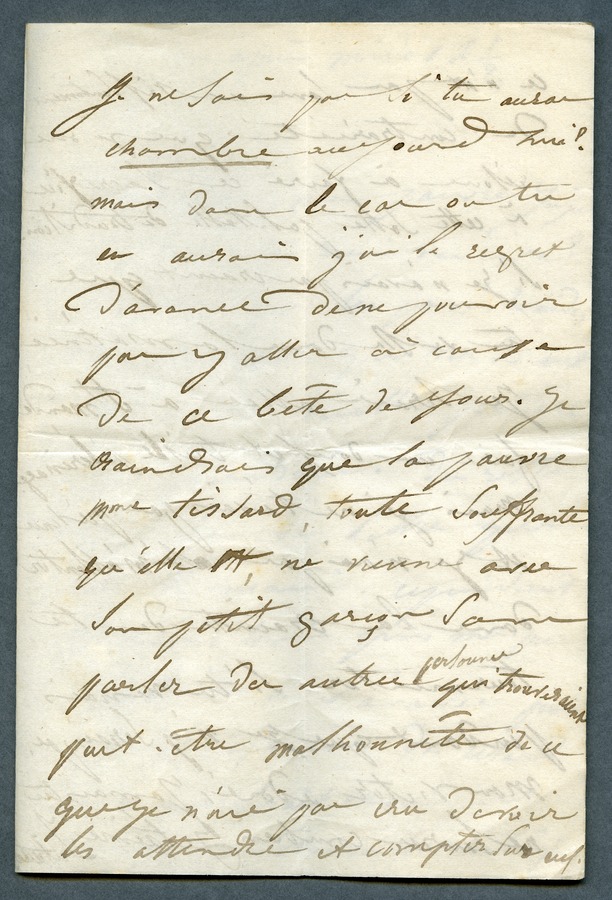 Je ne sais pas si tu auras
chambre aujourd'hui?
mais dans le cas où tu
en aurais j'ai le regret
d'avance de ne pouvoir
pas y aller à cause
de ce bête de jour. Je
craindrais que la pauvre
mme tissard, toute souffrante
qu'elle est, ne vienne avec
son petit garçon sans
parler des autres personnes qui trouveraient
peut-être malhonnête de ce
que je n'aie pas cru devoir
les attendre et compter sur eux.